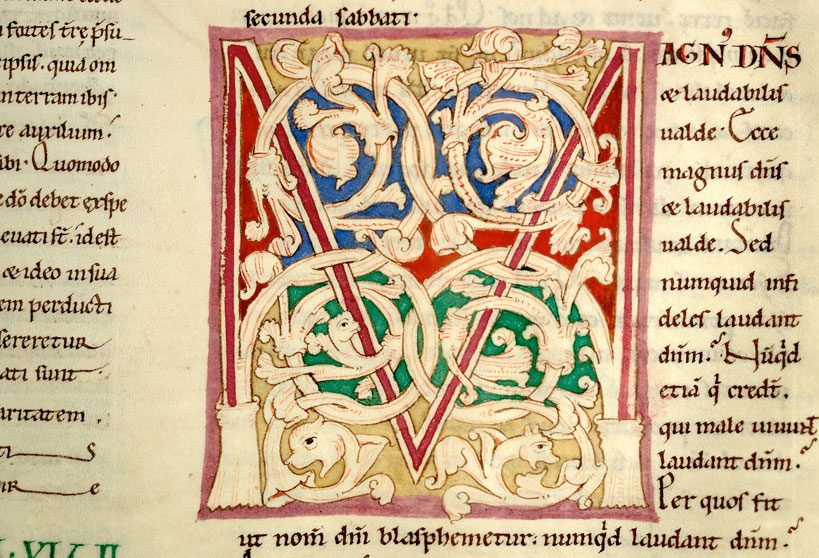 fortes t̄re p̄su
ipsis. quia om
in terram ibis.
re auxilium.
ibi. Quomodo
e dō debet exspe
evati st̄. id est
& ideo in sua
em perducti
sereretur
ati sunt
aritatem.
secunda sabbati.
MAGN᾽ DÑS
& laudabilis
ualde. Ecce
magnus dn̄s
& laudabilis
ualde. Sed
numquid infi
deles laudant
dūm. Nūq̇d
etiā q̄ credt̄.
qui male uiuunt
laudant dūm.
Per quos fit
ut nom̄ dm̄ blasphemetur. numq̇d laudant dūm.